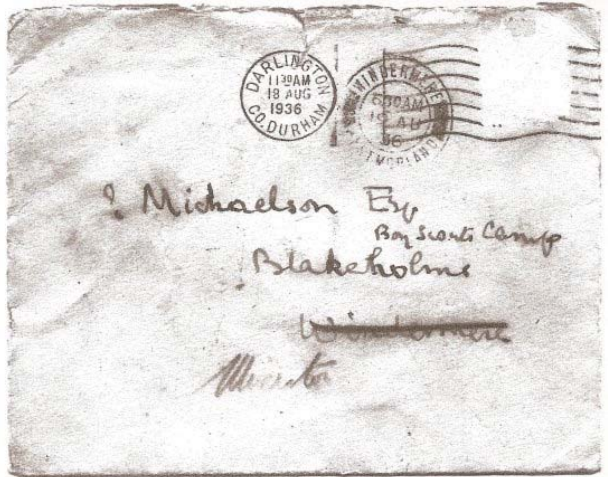 DARLINGTON
11 30 AM
18 AUG
1936
CO. DURHAM
WINDERMERE
6 30 AM
19 AU
36
WESTMORLAND
? Michaelson Esq
Boy Scouts Camp
Blakeholme
Windermere
Ulverston